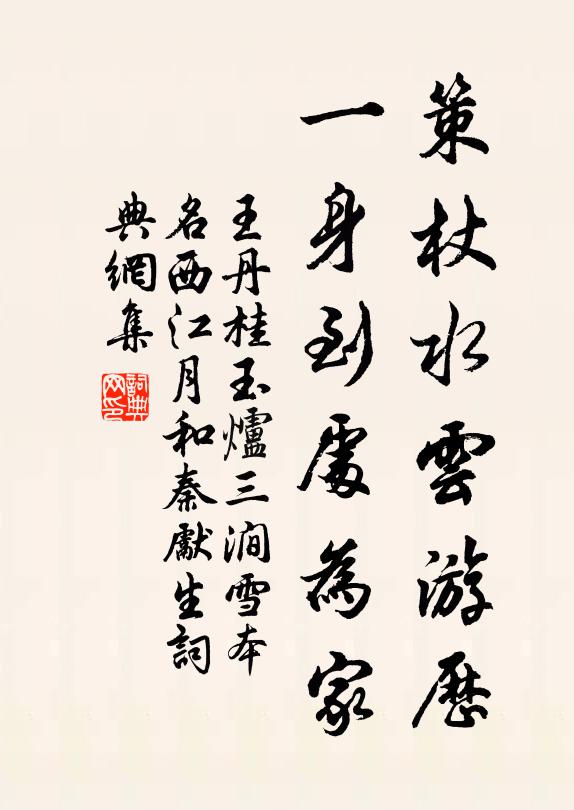 策杖水雲游歷
一身到處為家
王丹桂玉爐三澗雪本
名西江月和秦獻生詞
典網集
詞典網印